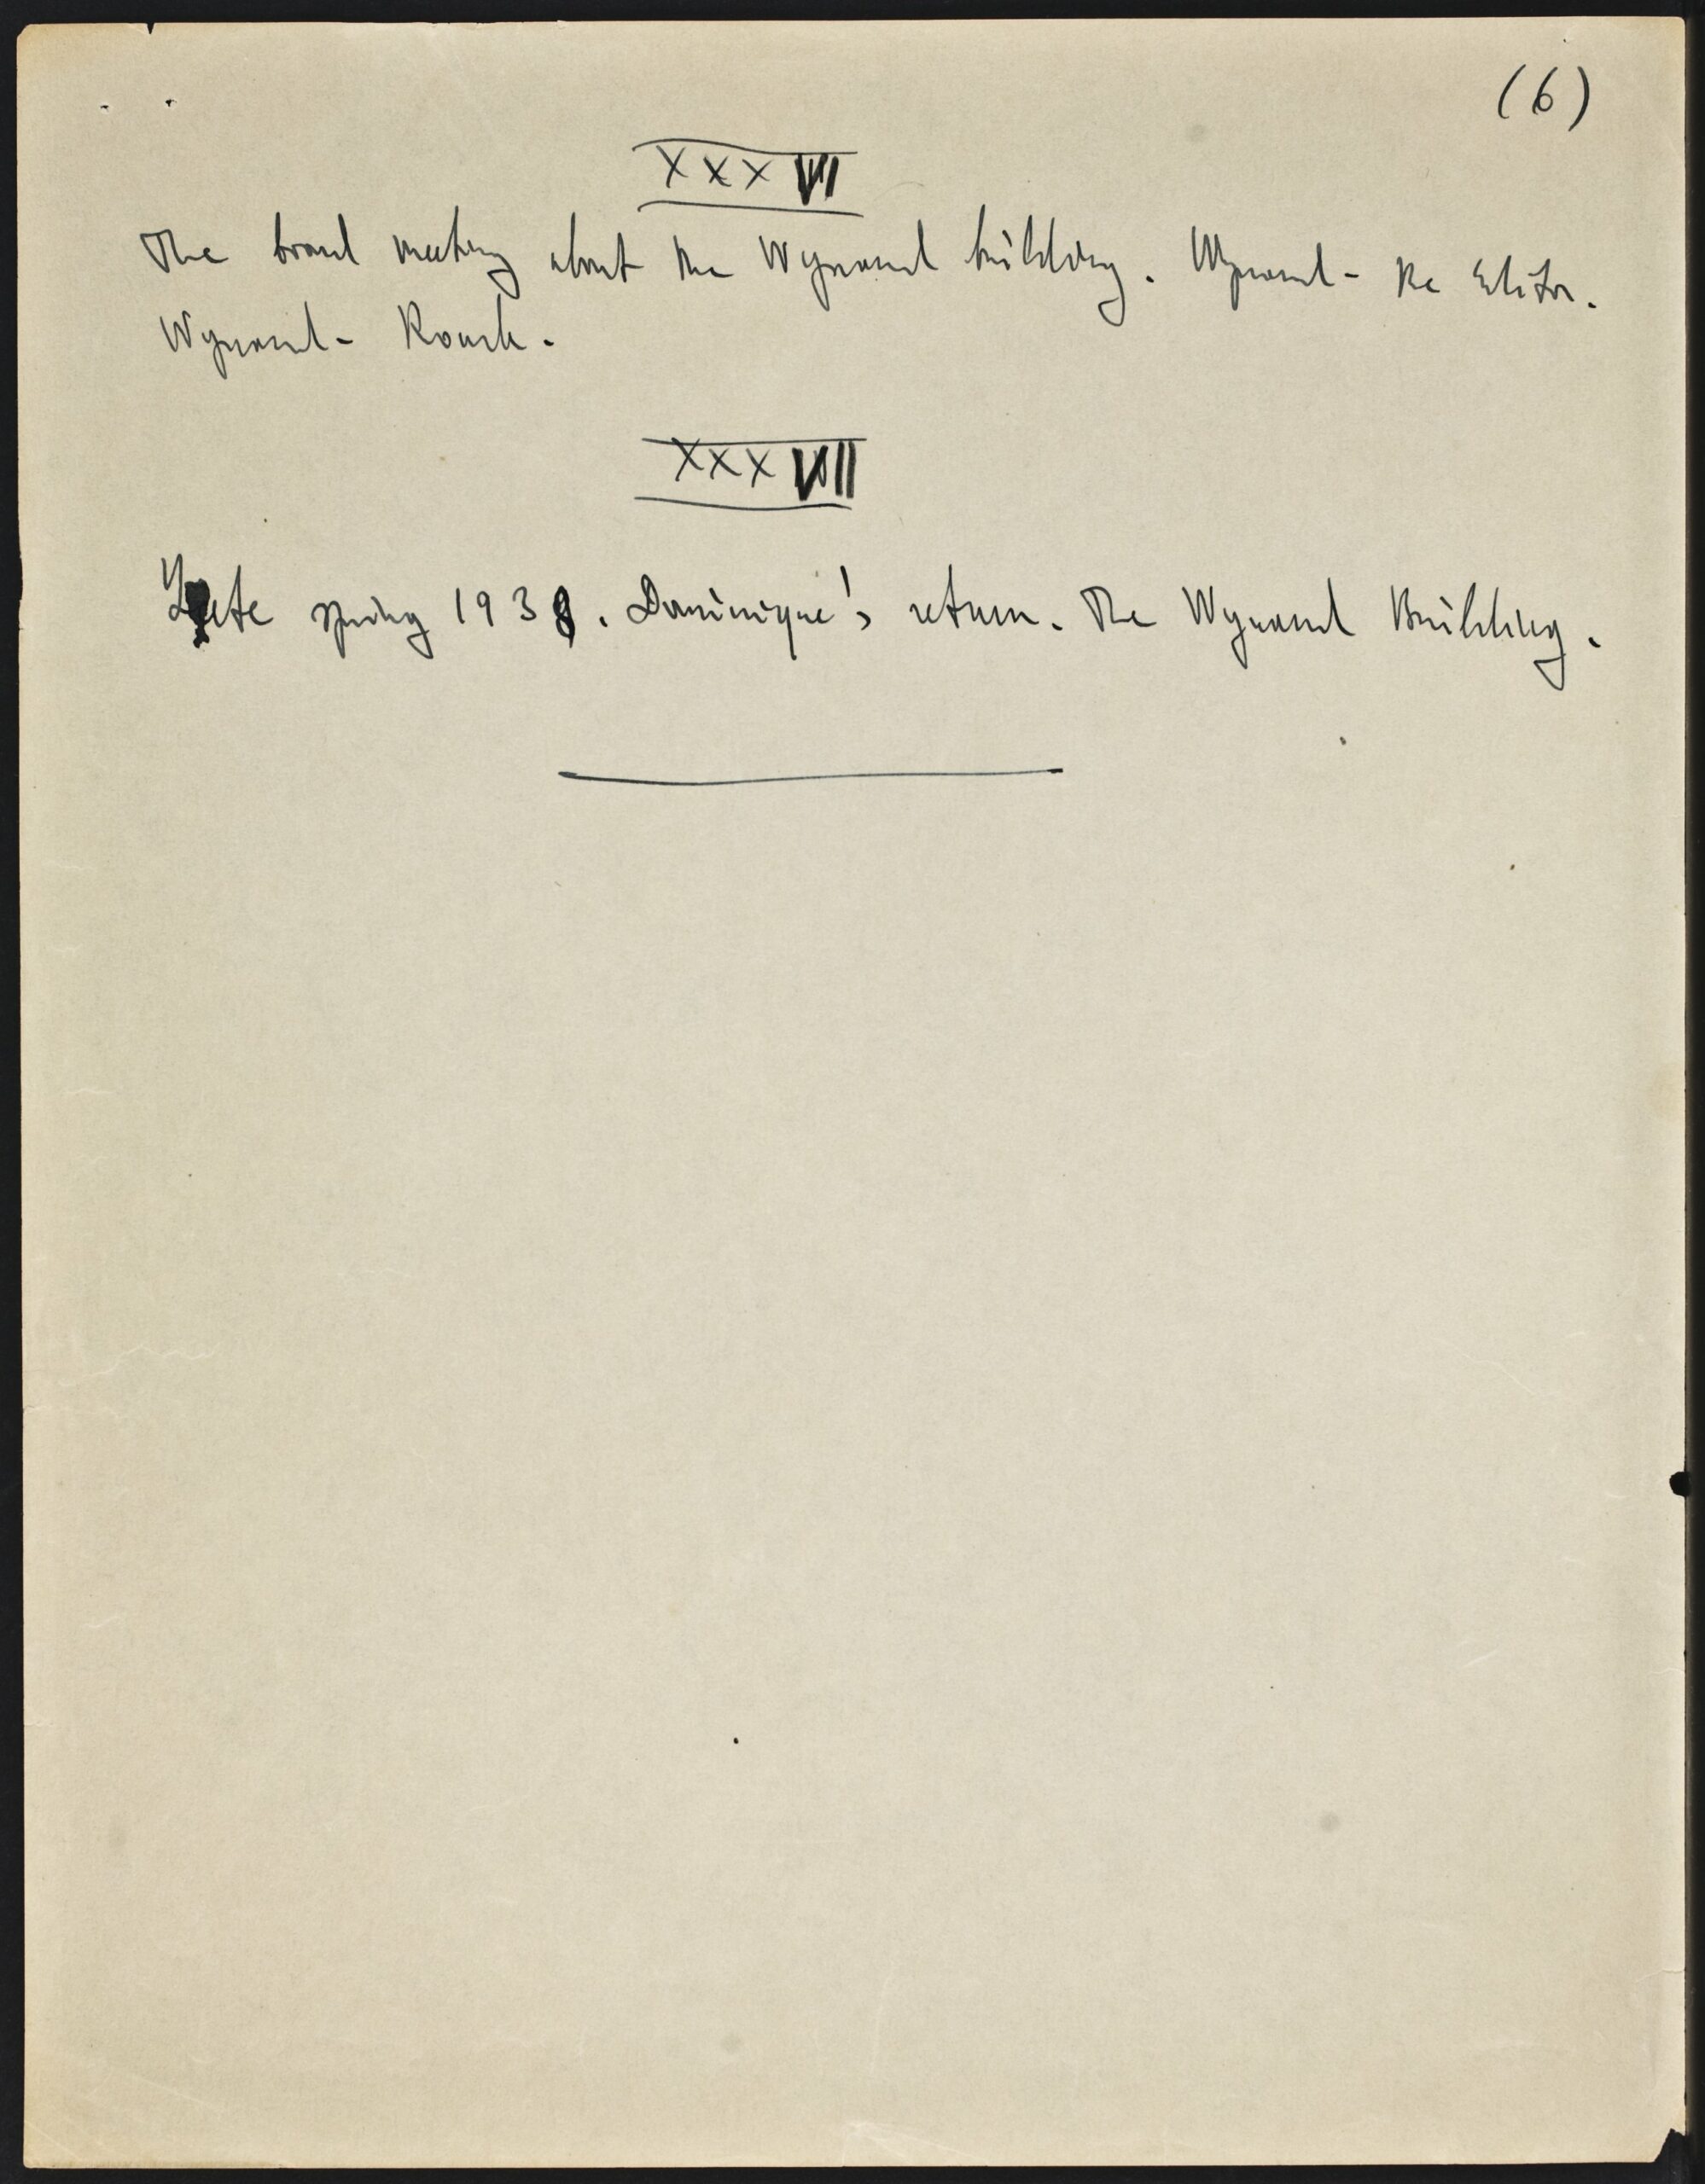 (6)
XXXVI
The board meeting about the Wynand building. Wynand - the Editor.
Wynand - Roark.
XXXVII
Late spring 1938. Dominique's return. The Wynand Building.